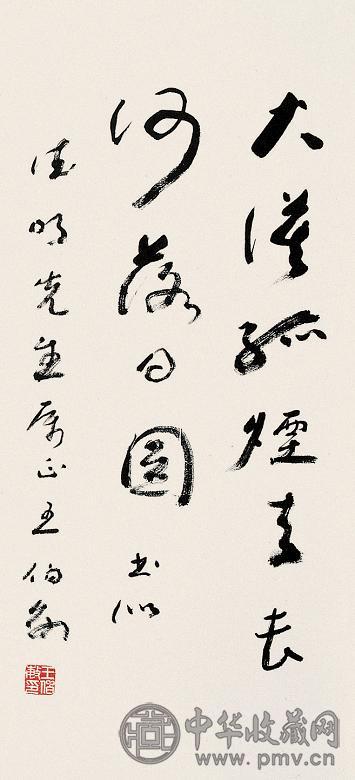 大漠孤煙直長
河落日圓 书似
德明先生属正 王伯敏
王伯敏印
中华收藏网
www.pmv.cn